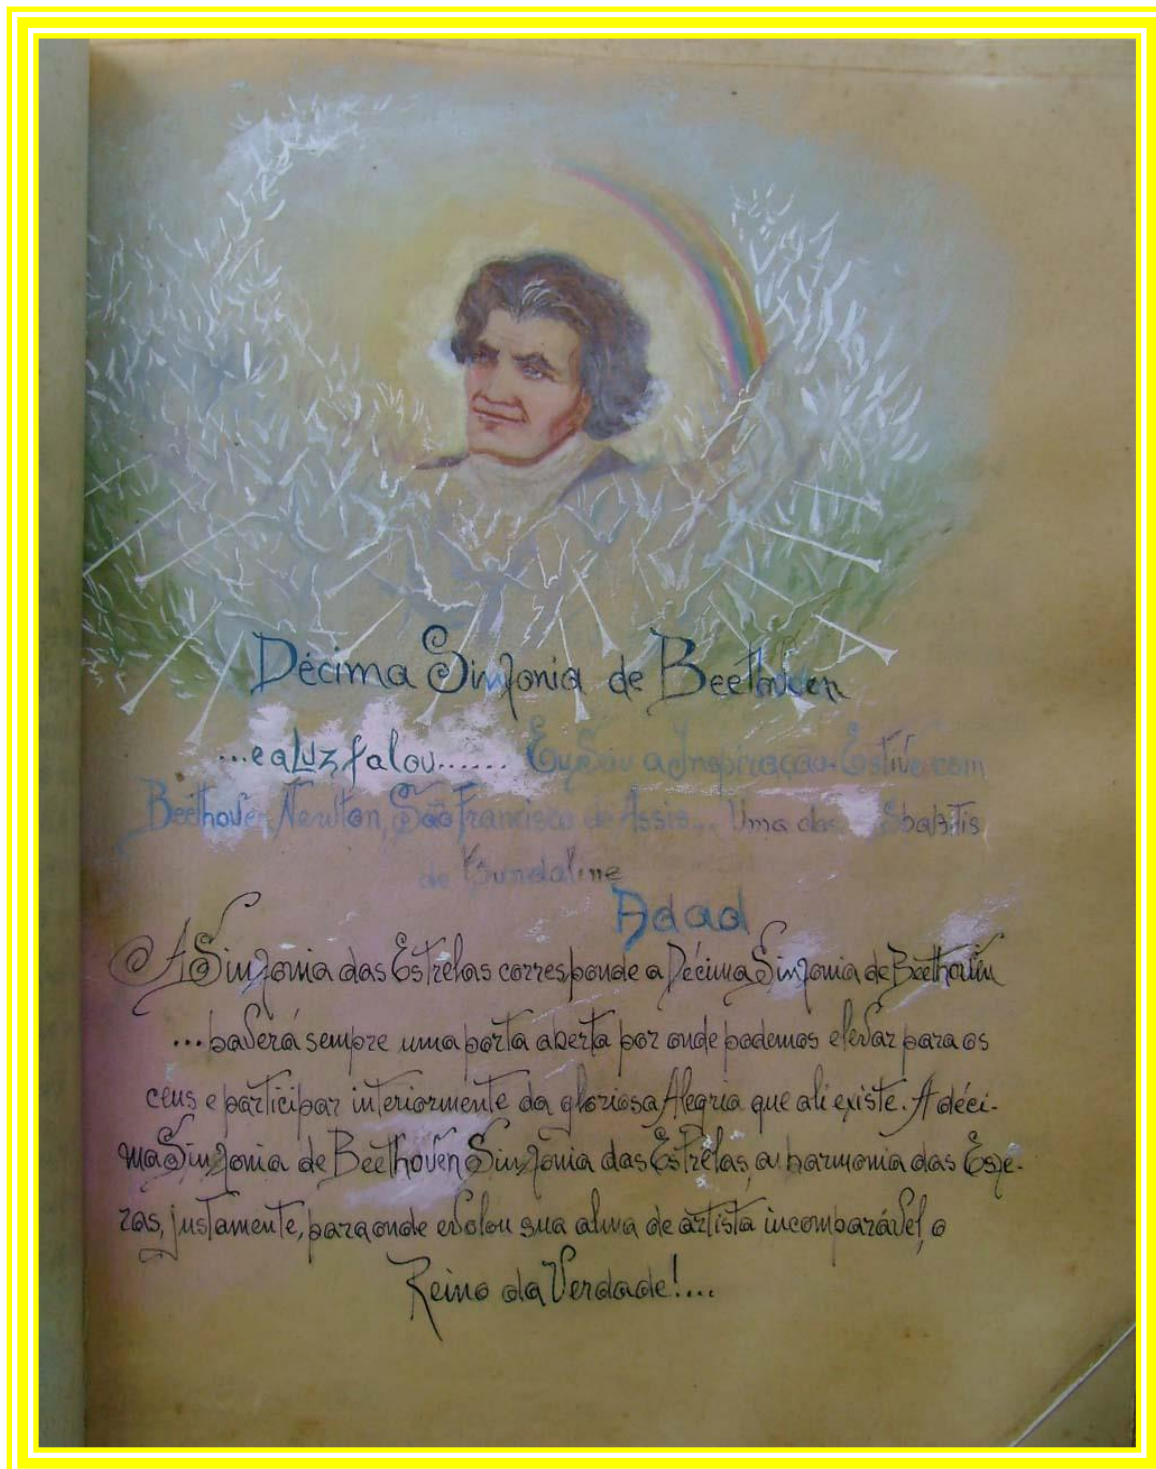 Décima Sinfonia de Beethoven
...e a Luz falou...... Eu Sou a Inspiração. Estive com
Beethoven, Newton, São Francisco de Assis... Uma das
de Kundaline
Adad
A Sinfonia das Estrelas corresponde a Décima Sinfonia de Beethoven
...haverá sempre uma porta aberta por onde podemos elevar para os
céus e participar interiormente da gloriosa Alegria que ali existe. A déci-
ma Sinfonia de Beethoven Sinfonia das Estrelas, a harmonia das Esfe-
ras, justamente, para onde evolou sua alma de artista incomparável, o
Reino da Verdade!...